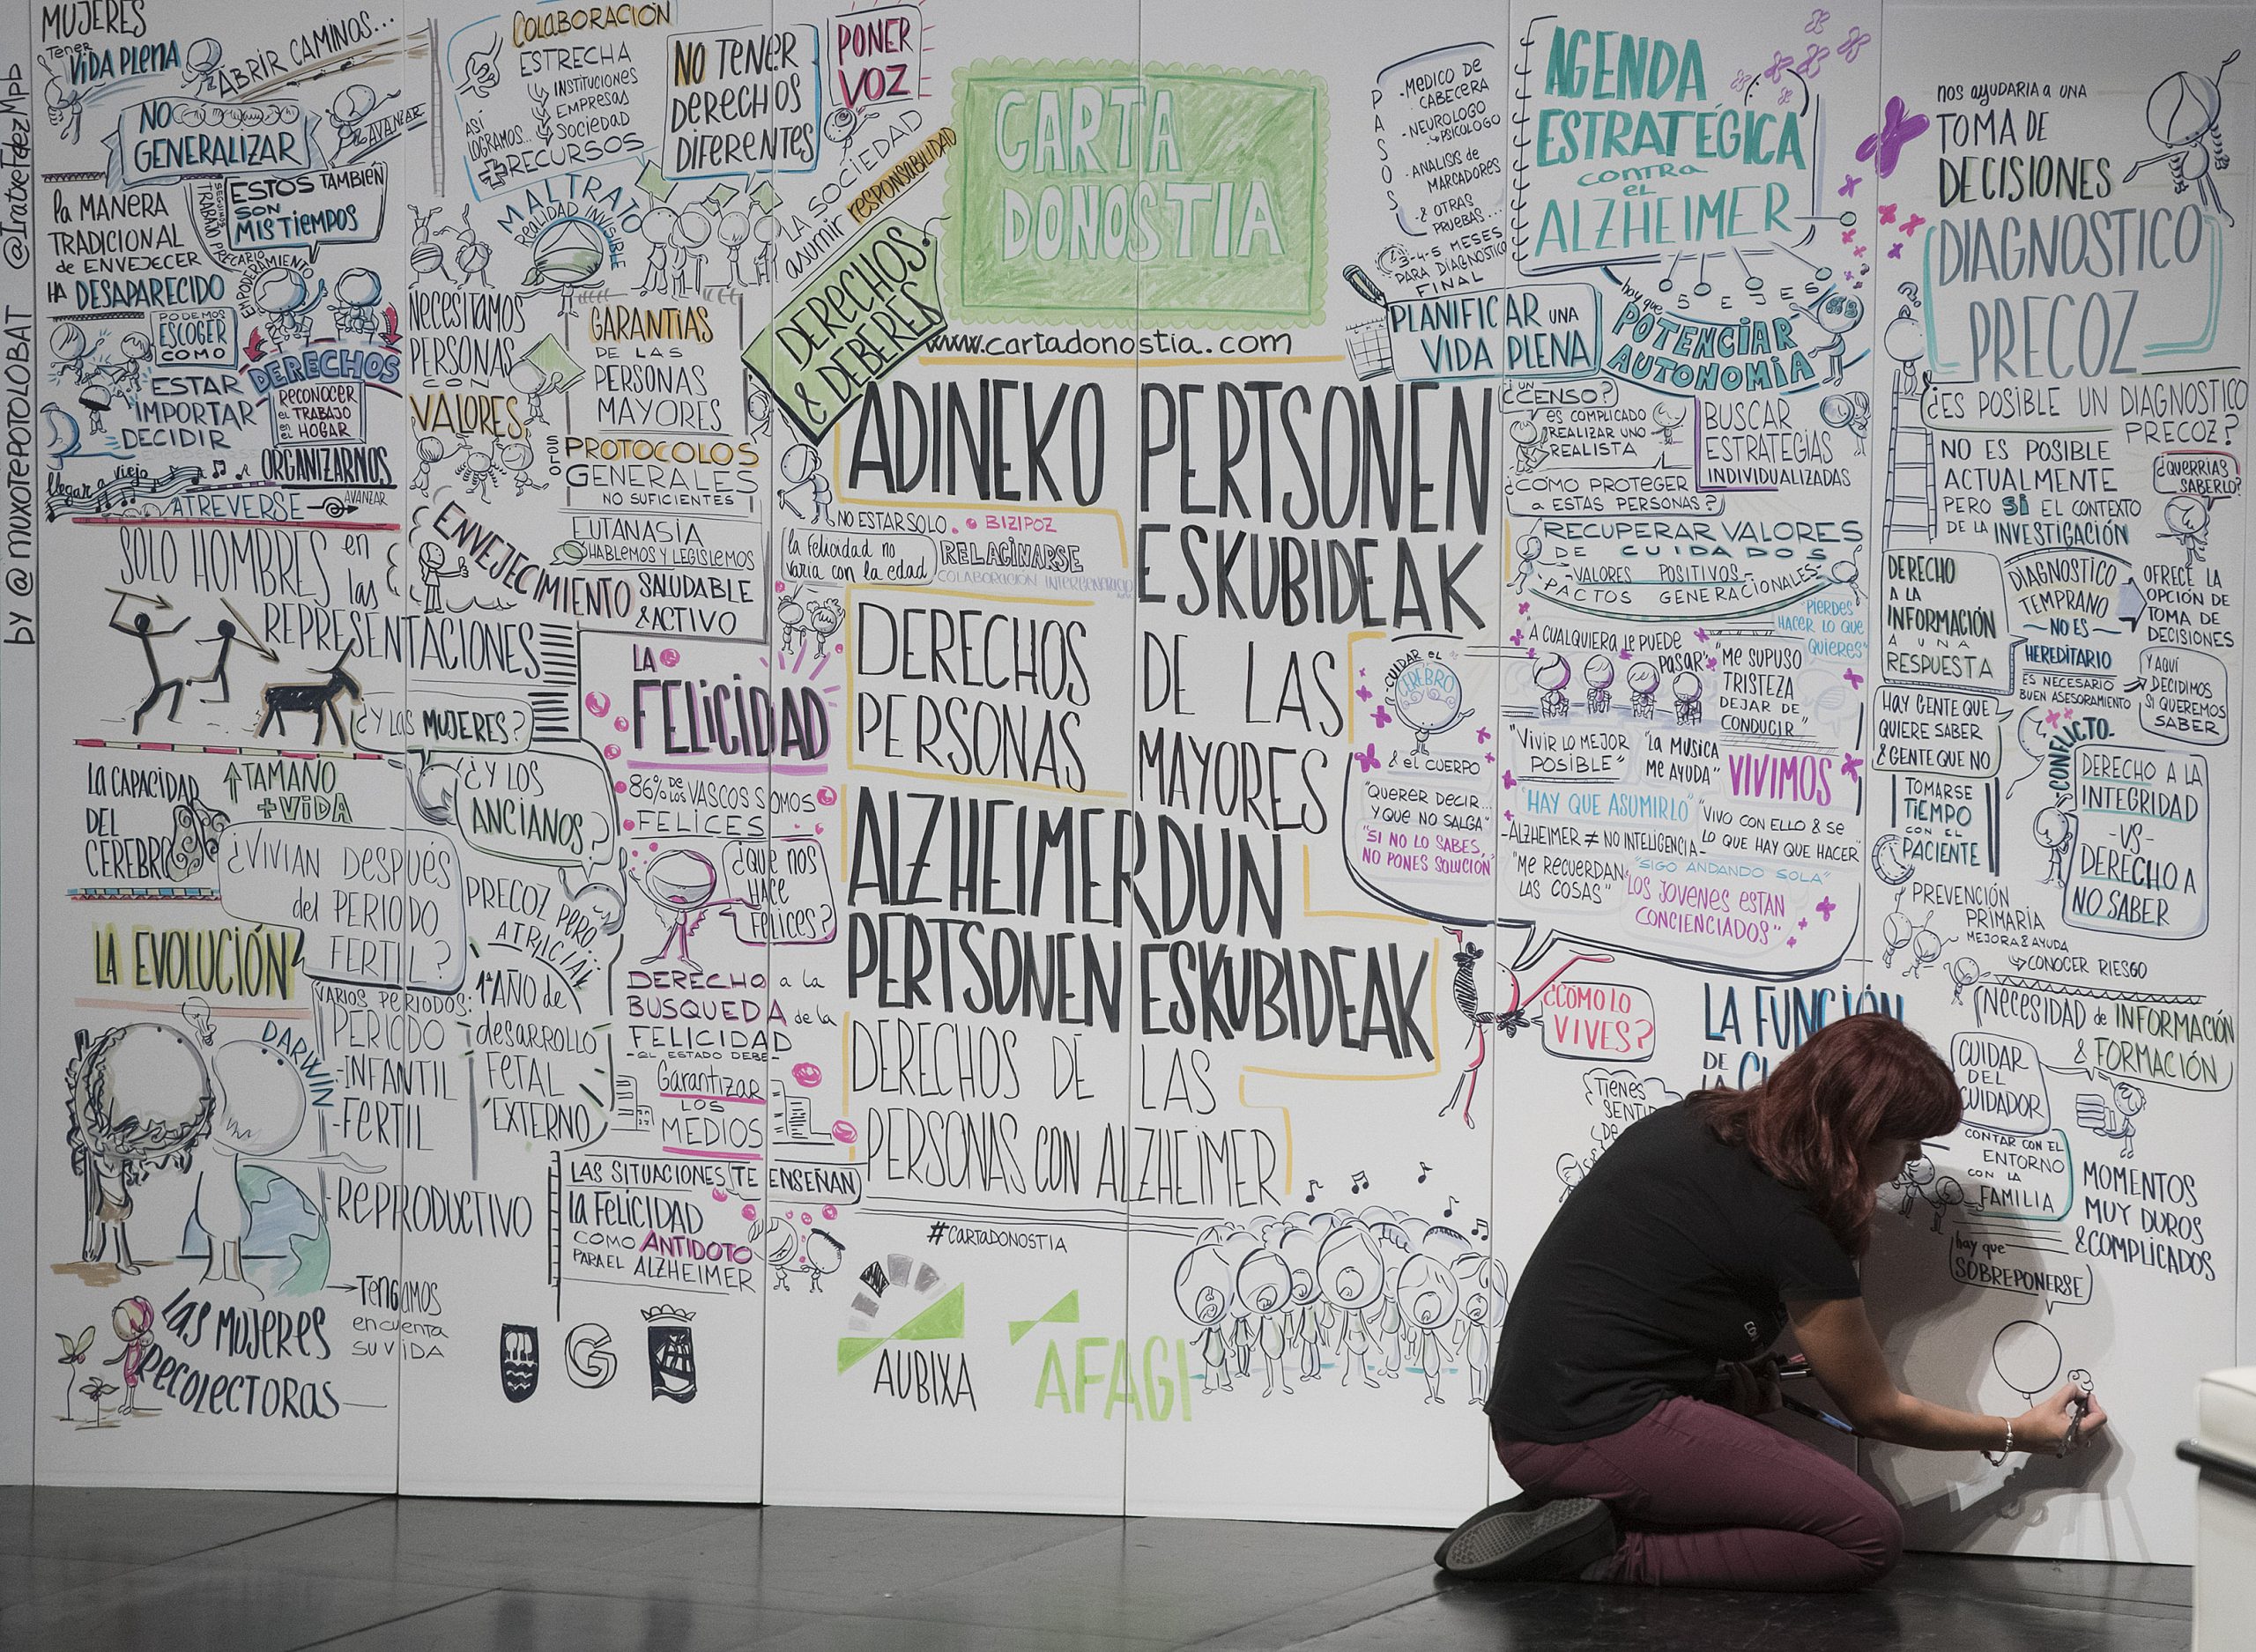 by @muxotepotolobat @IratxeFdezMpb
MUJERES
Tener
VIDA PLENA
ABRIR CAMINOS...
NO
GENERALIZAR
AVANZAR
la MANERA
TRADICIONAL
de ENVEJECER
HA DESAPARECIDO
SEGUIMOS
TRABAJO PRECARIO
ESTOS TAMBIÉN
SON
MIS TIEMPOS
EMPODERAMIENTO
PODEMOS
ESCOGER
COMO
ESTAR
IMPORTAR
DECIDIR
DERECHOS
RECONOCER
el TRABAJO
en el
HOGAR
llegar a viejo
ORGANIZARNOS
ATREVERSE
AVANZAR
SOLO HOMBRES en
las
REPRESENTACIONES
¿Y LAS MUJERES?
LA CAPACIDAD
DEL
CEREBRO
↑TAMAÑO
+VIDA
¿Y LOS
ANCIANOS?
¿VIVIAN DESPUÉS
del PERIODO
FERTIL?
LA EVOLUCIÓN
PRECOZ PERO
ATRICIAL
VARIOS PERIODOS:
PERIODO
-INFANTIL
-FERTIL
-REPRODUCTIVO
1er AÑO de
desarrollo
FETAL
EXTERNO
DARWIN
→TENGAMOS
en cuenta
SU VIDA
LAS MUJERES
RECOLECTORAS
COLABORACIÓN
ESTRECHA
INSTITUCIONES
EMPRESAS
SOCIEDAD
ASI
LOGRAMOS...
+RECURSOS
NO TENER
DERECHOS
DIFERENTES
PONER
VOZ
LA SOCIEDAD
asumir responsabilidad
MALTRATO
REALIDAD INVISIBLE
NECESITAMOS
PERSONAS
CON
VALORES
GARANTIAS
DE LAS
PERSONAS
MAYORES
SOLO
PROTOCOLOS
GENERALES
NO SUFICIENTES
EUTANASIA
HABLEMOS Y LEGISLEMOS
ENVEJECIMIENTO SALUDABLE
& ACTIVO
LA
FELICIDAD
86% DE LOS VASCOS SOMOS
FELICES
¿QUE NOS
HACE
FELICES?
DERECHO a la
BUSQUEDA de la
FELICIDAD
-EL ESTADO DEBE-
Garantizar
LOS
MEDIOS
LAS SITUACIONES TE ENSEÑAN
la FELICIDAD
COMO ANTIDOTO
PARA EL ALZHEIMER
G
DERECHOS
& DEBERES
CARTA
DONOSTIA
www.cartadonostia.com
ADINEKO PERTSONEN
ESKUBIDEAK
NO ESTAR SOLO
BIZIPOZ
la felicidad no
varia con la edad
RELACINARSE
DERECHOS DE LAS
PERSONAS MAYORES
ALZHEIMERDUN
PERTSONEN ESKUBIDEAK
DERECHOS DE LAS
PERSONAS CON ALZHEIMER
#CARTADONOSTIA
AUBIXA
AFAGI
PASOS
-MEDICO DE
CABECERA
-NEUROLOGO
↳PSICOLOGO
-ANALISIS de
MARCADORES
-& OTRAS
PRUEBAS...
3-4-5 MESES
PARA DIAGNÓSTICO
FINAL
AGENDA
ESTRATÉGICA
contra
el
ALZHEIMER
5 EJES
PLANIFICAR UNA
VIDA PLENA
hay que
POTENCIAR
AUTONOMIA
¿UN
CENSO?
ES COMPLICADO
REALIZAR UNO
REALISTA
BUSCAR
ESTRATEGIAS
INDIVIDUALIZADAS
¿CÓMO PROTEGER
a ESTAS PERSONAS?
RECUPERAR VALORES
DE CUIDADOS
VALORES POSITIVOS
PACTOS GENERACIONALES
CUIDAR el
CEREBRO
& el CUERPO
"A CUALQUIERA LE PUEDE
PASAR"
"PIERDES
HACER LO QUE
QUIERES"
"ME SUPUSO
TRISTEZA
DEJAR DE
CONDUCIR"
"QUERER DECIR...
Y QUE NO SALGA"
"SI NO LO SABES,
NO PONES SOLUCIÓN"
"VIVIR LO MEJOR
POSIBLE"
"LA MUSICA
ME AYUDA"
VIVIMOS
"HAY QUE ASUMIRLO"
"VIVO CON ELLO & SE
LO QUE HAY QUE HACER"
-ALZHEIMER ≠ NO INTELIGENCIA-
"ME RECUERDAN
LAS COSAS"
"SIGO ANDANDO SOLA"
"LOS JOVENES ESTAN
CONCIENCIADOS"
¿CÓMO LO
VIVES?
LA FUNCIÓN
DE
LA
TIENES
nos ayudaria a UNA
TOMA DE
DECISIONES
DIAGNOSTICO
PRECOZ
¿ES POSIBLE UN DIAGNOSTICO
PRECOZ?
NO ES POSIBLE
ACTUALMENTE
PERO SI EL CONTEXTO
DE LA INVESTIGACIÓN
¿QUERRIAS
SABERLO?
DERECHO
A LA
INFORMACIÓN
A UNA
RESPUESTA
DIAGNOSTICO
TEMPRANO
-NO ES-
HEREDITARIO
ES NECESARIO
BUEN ASESORAMIENTO
OFRECE LA
OPCIÓN DE
TOMA DE
DECISIONES
Y AQUÍ
DECIDIMOS
SI QUEREMOS
SABER
HAY GENTE QUE
QUIERE SABER
& GENTE QUE NO
CONFLICTO
DERECHO A LA
INTEGRIDAD
-VS-
DERECHO A
NO SABER
TOMARSE
TIEMPO
CON EL
PACIENTE
PREVENCIÓN
PRIMARIA
MEJORA & AYUDA
↳CONOCER RIESGO
NECESIDAD de INFORMACIÓN
& FORMACIÓN
CUIDAR
DEL
CUIDADOR
CONTAR CON EL
ENTORNO
CON LA
FAMILIA
MOMENTOS
MUY DUROS
& COMPLICADOS
hay que
SOBREPONERSE